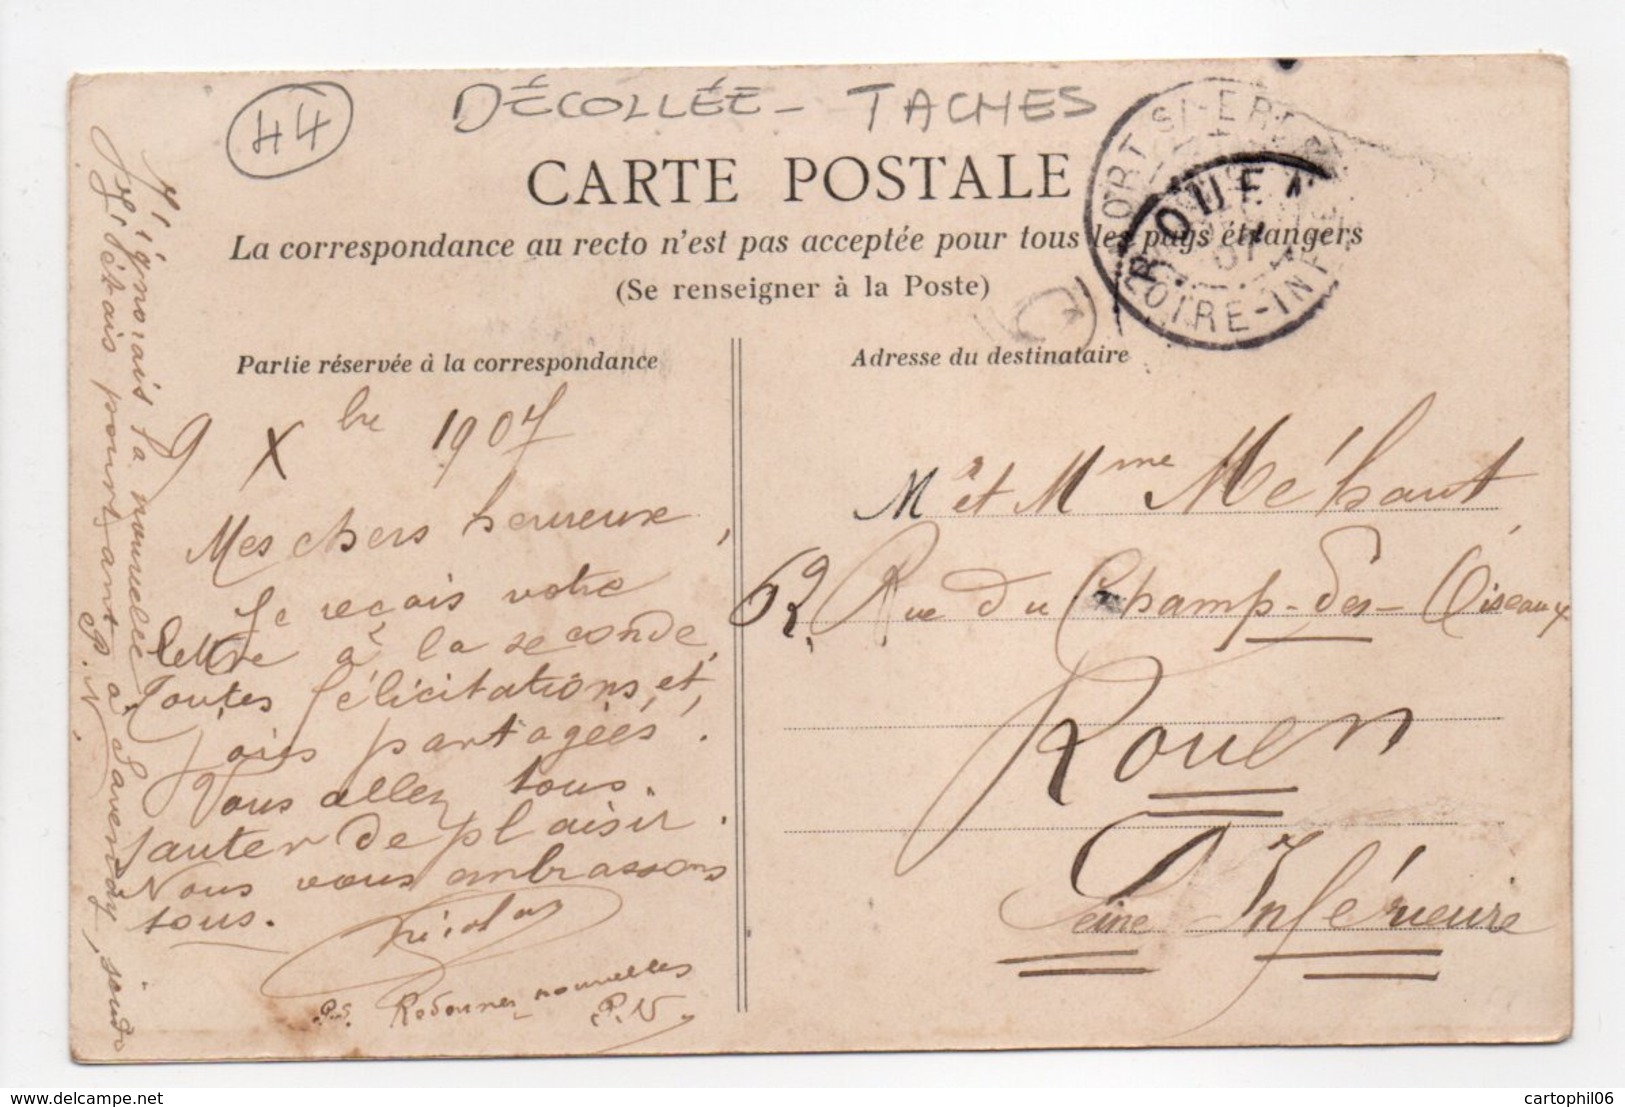 44
DÉCOLLÉE - TACHES
CARTE POSTALE
La correspondance au recto n'est pas acceptée pour tous les pays étrangers
(Se renseigner à la Poste)
ROUEN
OIRE-INF
07
Partie réservée à la correspondance
Adresse du destinataire
9 Xbre 1907
Mes chers heureux,
Je reçois votre
lettre à la seconde,
Toutes félicitations et,
joies partagées.
Vous allez tous
sauter de plaisir.
Nous vous embrassons
tous.
Nicolas
P.S. Redonnez nouvelles
P. N
J'ignorais ta nouvelle
J'étais pourtant à Savenay, jeudi
P. N.
Mr et Mme Méhaut
62, Rue du Champ-des-Oiseaux
Rouen
Seine Inférieure
cartophil06
www.delcampe.net